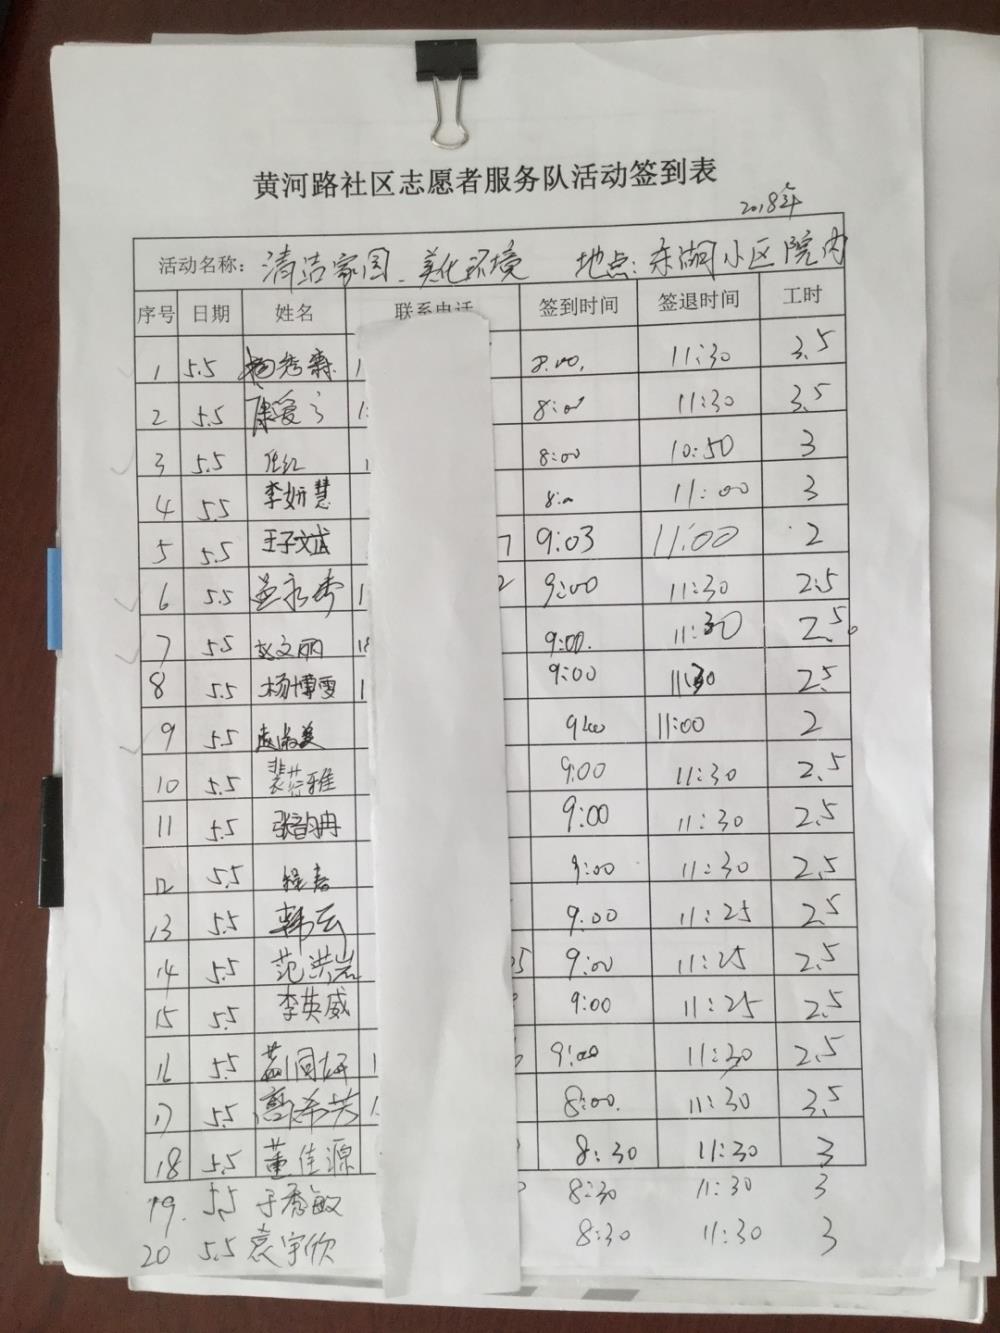 黄河路社区志愿者服务队活动签到表
2018年
活动名称: 清洁家园、美化环境 地点: 东湖小区院内
序号 日期 姓名 联系电话 签到时间 签退时间 工时
1 5.5 杨秀 1 8:00. 11:30 3.5
2 5.5 康爱 1 8:00 11:30 3.5
3 5.5 任红 8:00 10:50 3
4 5.5 李妍慧 8: 11:00 3
5 5.5 王子文斌 7 9:03 11:00 2
6 5.5 孟永 1 2 9:00 11:30 2.5
7 5.5 赵文丽 18 9:00. 11:30 2.5
8 5.5 杨博雯 1 9:00 11:30 2.5
9 5.5 赵淑美 9:00 11:00 2
10 5.5 裴雅 9:00 11:30 2.5
11 5.5 张韵冉 9:00 11:30 2.5
12 5.5 9:00 11:30 2.5
13 5.5 韩云 9:00 11:25 2.5
14 5.5 范洪岩 05 9:00 11:25 2.5
15 5.5 李英威 9:00 11:25 2.5
16 5.5 1 9:00 11:30 2.5
17 5.5 8:00. 11:30 3.5
18 5.5 董佳源 8:30 11:30 3
19. 5.5 于秀敏 8:30 11:30 3
20 5.5 袁宇欣 8:30 11:30 3